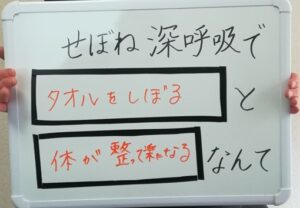 せぼね深呼吸で
タオルをしぼると
体が整って楽になるなんて